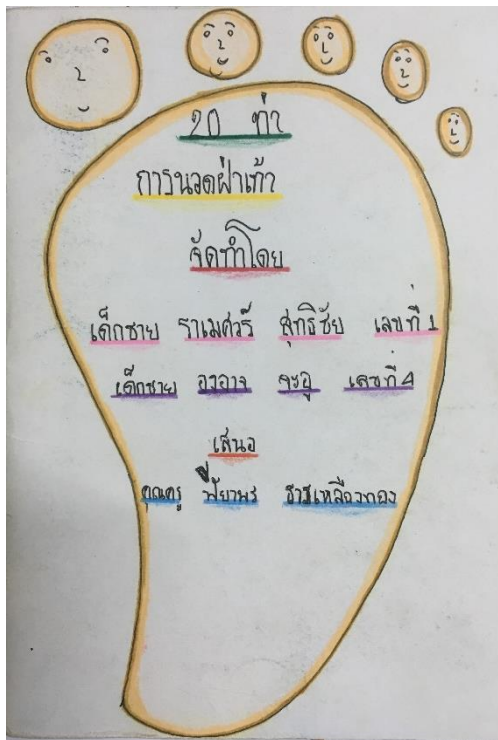 20 ท่า
การนวดฝ่าเท้า
จัดทำโดย
เด็กชาย ราเมศวร์ สุทธิชัย เลขที่ 1
เด็กชาย องอาจ จะอู เลขที่ 4
เสนอ
คุณครู ธารเหลืองทอง